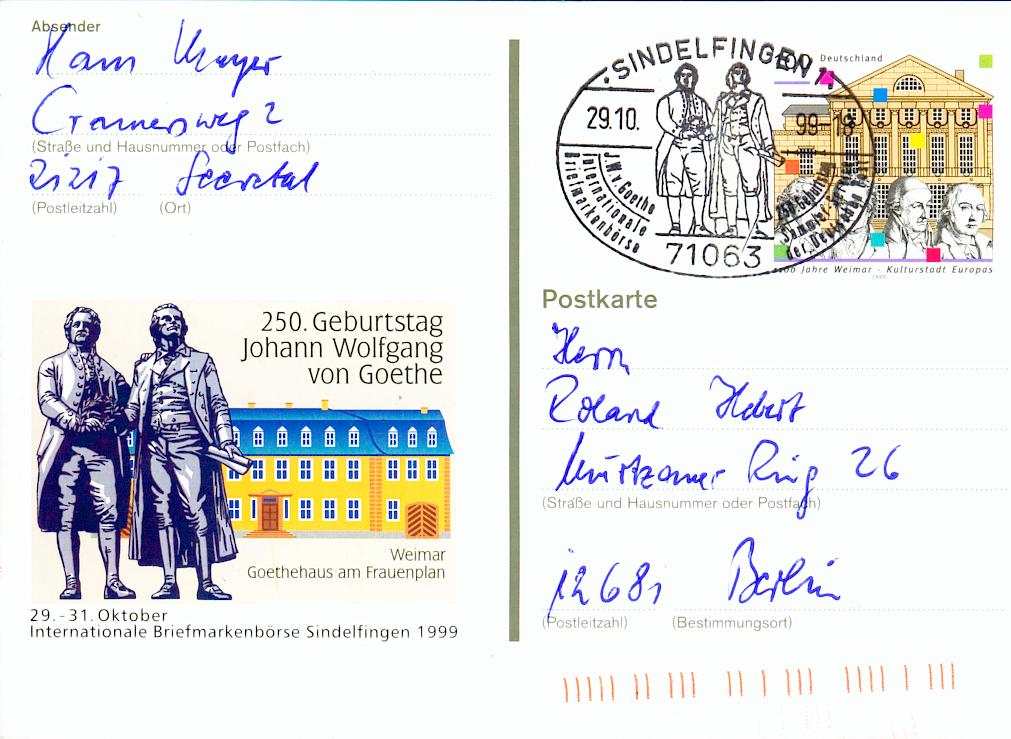 Absender
Hans Mayer
Cramersweg 2
(Straße und Hausnummer oder Postfach)
21217 Seevetal
(Postleitzahl) (Ort)
250. Geburtstag
Johann Wolfgang
von Goethe
Weimar
Goethehaus am Frauenplan
29.-31. Oktober
Internationale Briefmarkenbörse Sindelfingen 1999
SINDELFINGEN 1
29.10. 99-18
J.W.v. Goethe
Internationale
Briefmarkenbörse
250. Geburtstag
Sammler-Service
der Deutschen Post
71063
100 Deutschland
1100 Jahre Weimar - Kulturstadt Europas
1999
Postkarte
Herrn
Roland Hebert
Ring 26
(Straße und Hausnummer oder Postfach)
12681 Berlin
(Postleitzahl) (Bestimmungsort)